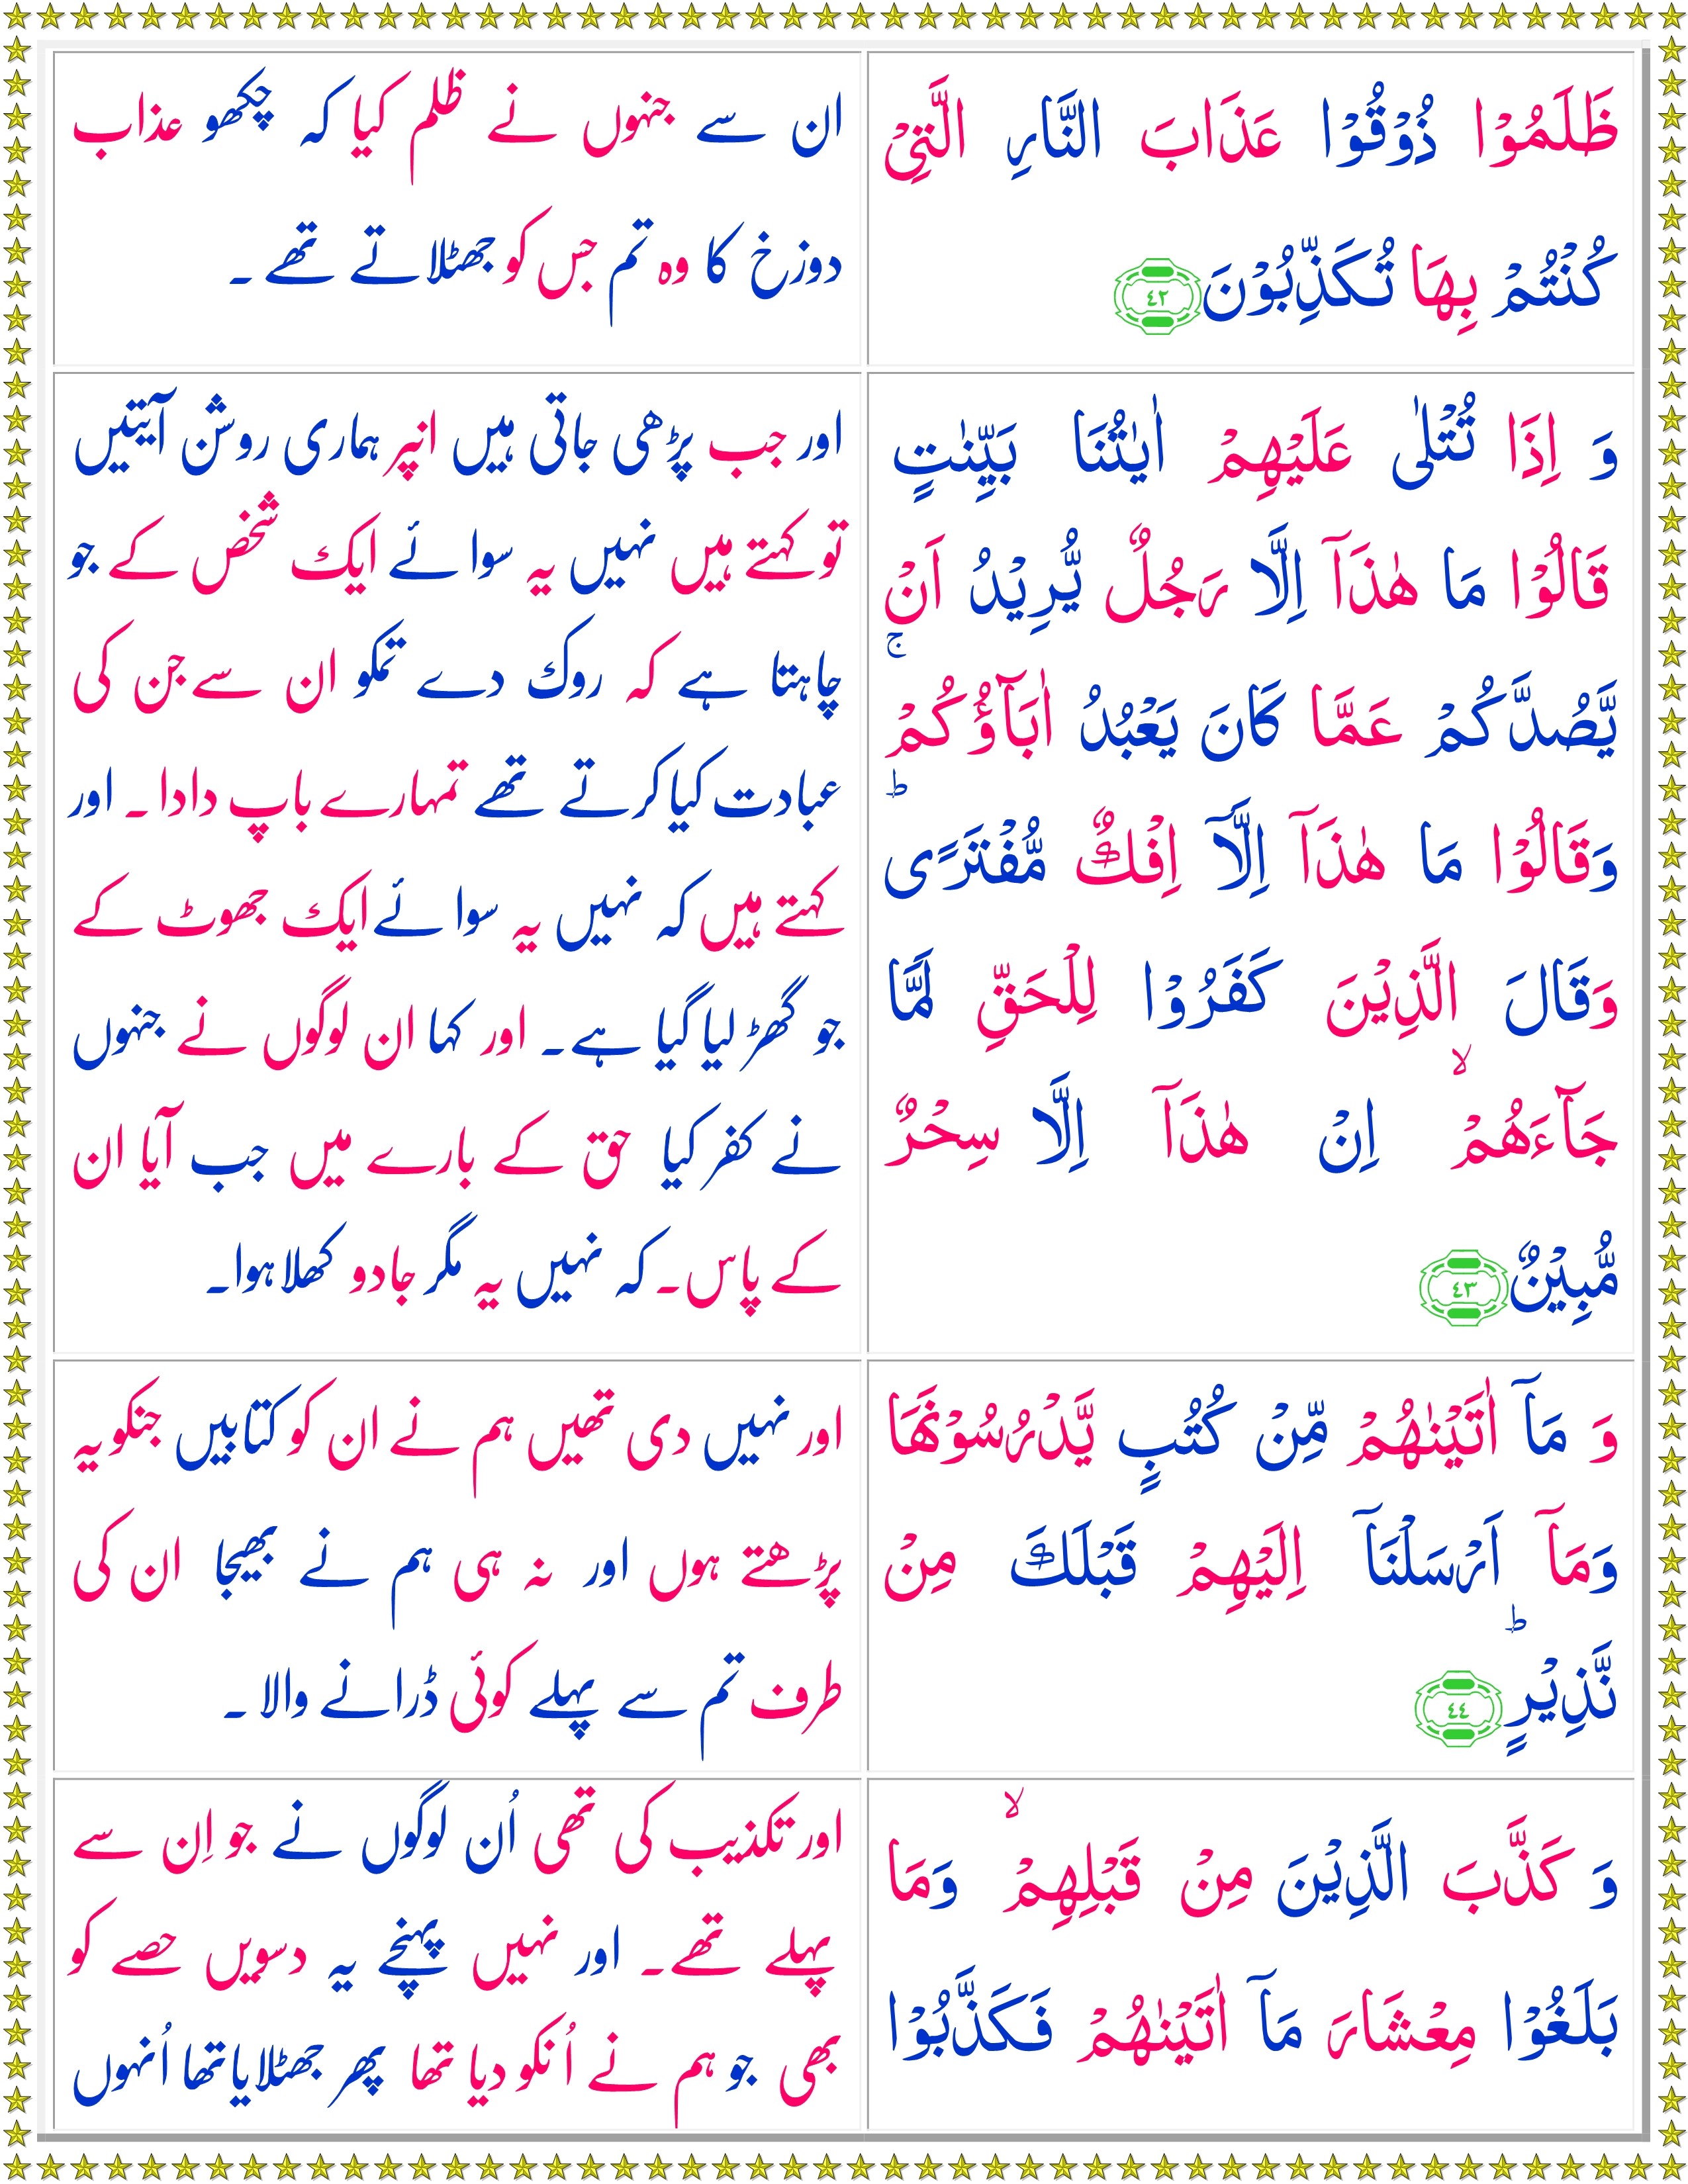 ظَلَمُوۡا ذُوۡقُوۡا عَذَابَ النَّارِ الَّتِىۡ
كُنۡتُمۡ بِهَا تُكَذِّبُوۡنَ ﴿٤٢﴾
ان سے جنہوں نے ظلم کیا کہ چکھو عذاب
دوزخ کا وہ تم جس کو جھٹلاتے تھے ۔
وَ اِذَا تُتۡلٰى عَلَيۡهِمۡ اٰيٰتُنَا بَيِّنٰتٍ
قَالُوۡا مَا هٰذَاۤ اِلَّا رَجُلٌ يُّرِيۡدُ اَنۡ
يَّصُدَّكُمۡ عَمَّا كَانَ يَعۡبُدُ اٰبَآؤُكُمۡ ۚ
وَقَالُوۡا مَا هٰذَاۤ اِلَّاۤ اِفۡكٌ مُّفۡتَرًى ؕ
وَقَالَ الَّذِيۡنَ كَفَرُوۡا لِلۡحَقِّ لَمَّا
جَآءَهُمۡ ۙ اِنۡ هٰذَاۤ اِلَّا سِحۡرٌ
مُّبِيۡنٌ ﴿٤٣﴾
اور جب پڑھی جاتی ہیں انپر ہماری روشن آیتیں
تو کہتے ہیں نہیں یہ سوائے ایک شخص کے جو
چاہتا ہے کہ روک دے تمکو ان سے جن کی
عبادت کیا کرتے تھے تمہارے باپ دادا ۔ اور
کہتے ہیں کہ نہیں یہ سوائے ایک جھوٹ کے
جو گھڑ لیا گیا ہے ۔ اور کہا ان لوگوں نے جنہوں
نے کفر کیا حق کے بارے میں جب آیا ان
کے پاس ۔ کہ نہیں یہ مگر جادو کھلا ہوا ۔
وَ مَاۤ اٰتَيۡنٰهُمۡ مِّنۡ كُتُبٍ يَّدۡرُسُوۡنَهَا
وَمَاۤ اَرۡسَلۡنَاۤ اِلَيۡهِمۡ قَبۡلَكَ مِنۡ
نَّذِيۡرٍ ؕ ﴿٤٤﴾
اور نہیں دی تھیں ہم نے ان کو کتابیں جنکو یہ
پڑھتے ہوں اور نہ ہی ہم نے بھیجا ان کی
طرف تم سے پہلے کوئی ڈرانے والا ۔
وَ كَذَّبَ الَّذِيۡنَ مِنۡ قَبۡلِهِمۡ ۙ وَمَا
بَلَغُوۡا مِعۡشَارَ مَاۤ اٰتَيۡنٰهُمۡ فَكَذَّبُوۡا
اور تکذیب کی تھی اُن لوگوں نے جو اِن سے
پہلے تھے ۔ اور نہیں پہنچے یہ دسویں حصے کو
بھی جو ہم نے اُنکو دیا تھا پھر جھٹلایا تھا اُنہوں